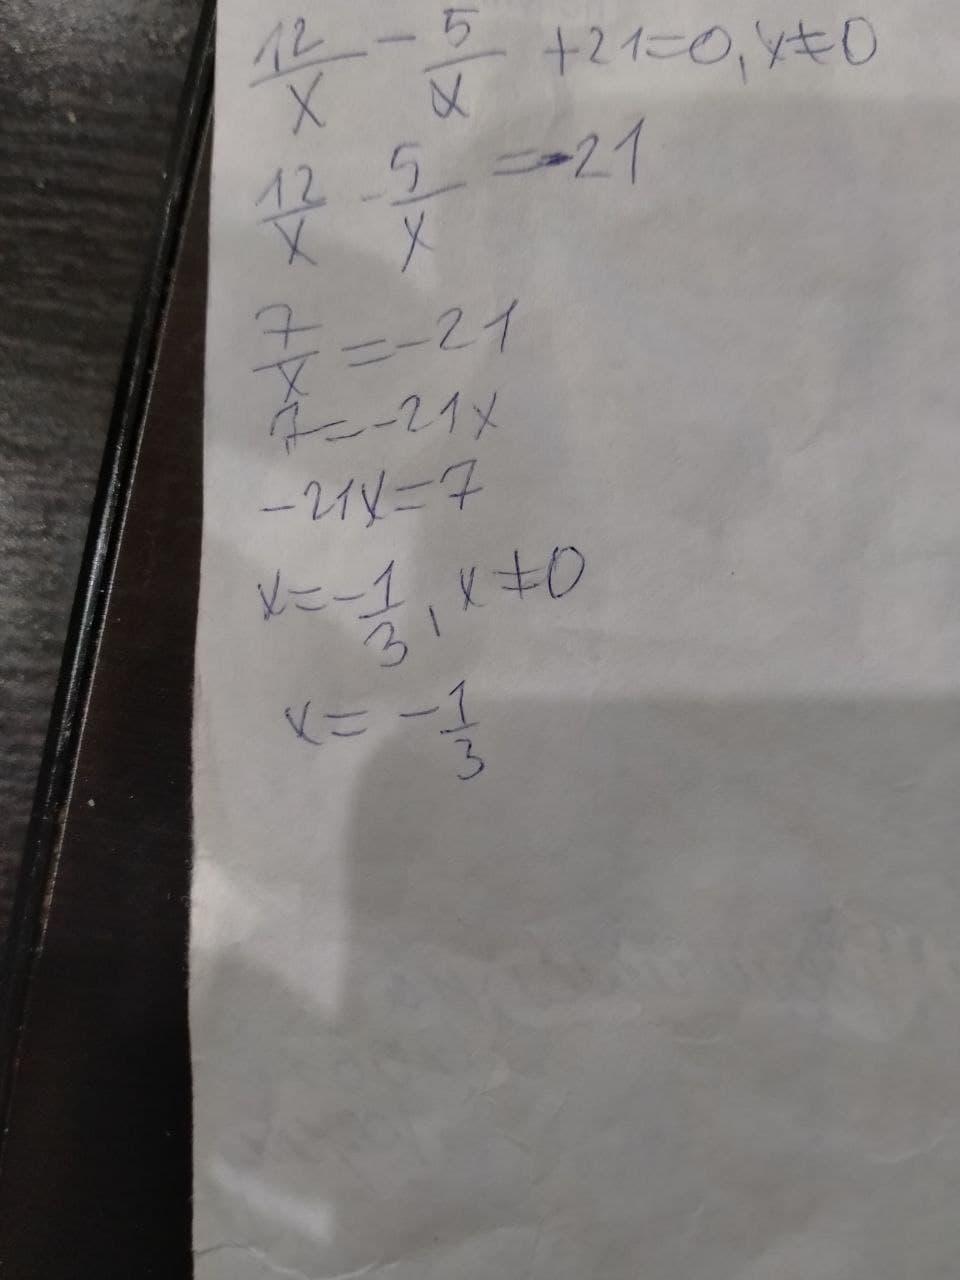 12/x - 5/x +21=0, x≠0
12/x - 5/x = -21
7/x = -21
7 = -21x
-21x=7
x = -1/3, x≠0
x = -1/3